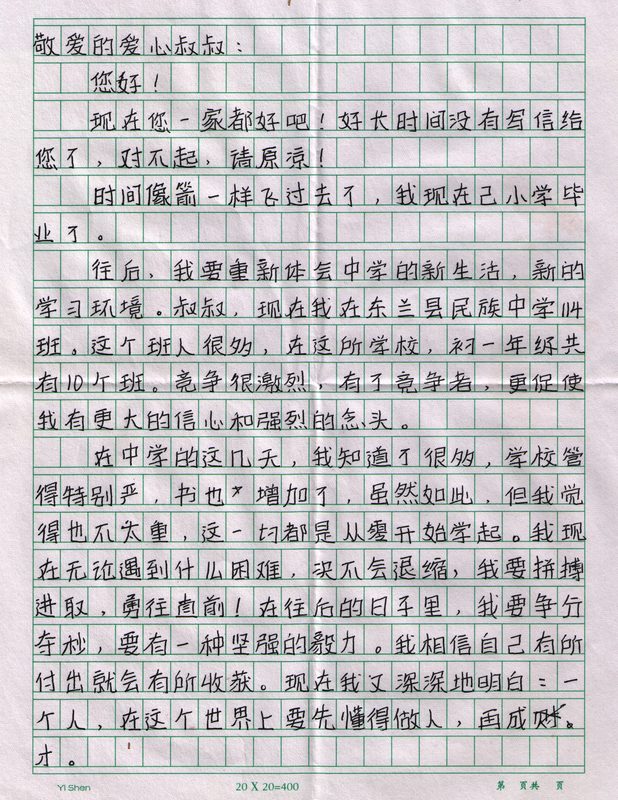 敬爱的爱心叔叔：
您好！
现在您一家都好吧！好长时间没有写信给
您了，对不起，请原凉！
时间像箭一样飞过去了，我现在已小学毕
业了。
往后，我要重新体会中学的新生活，新的
学习环境。叔叔，现在我在东兰县民族中学114
班。这个班人很多，在这所学校，初一年级共
有10个班。竞争很激烈，有了竞争者，更促使
我有更大的信心和强烈的念头。
在中学的这几天，我知道了很多，学校管
得特别严，书也增加了，虽然如此，但我觉
得也不太重，这一切都是从零开始学起。我现
在无论遇到什么困难，决不会退缩，我要拼搏
进取，勇往直前！在往后的日子里，我要争分
夺秒，要有一种坚强的毅力。我相信自己有所
付出就会有所收获。现在我又深深地明白：一
个人，在这个世界上要先懂得做人，再成
才。
Yi Shen 20 X 20=400 第 页共 页